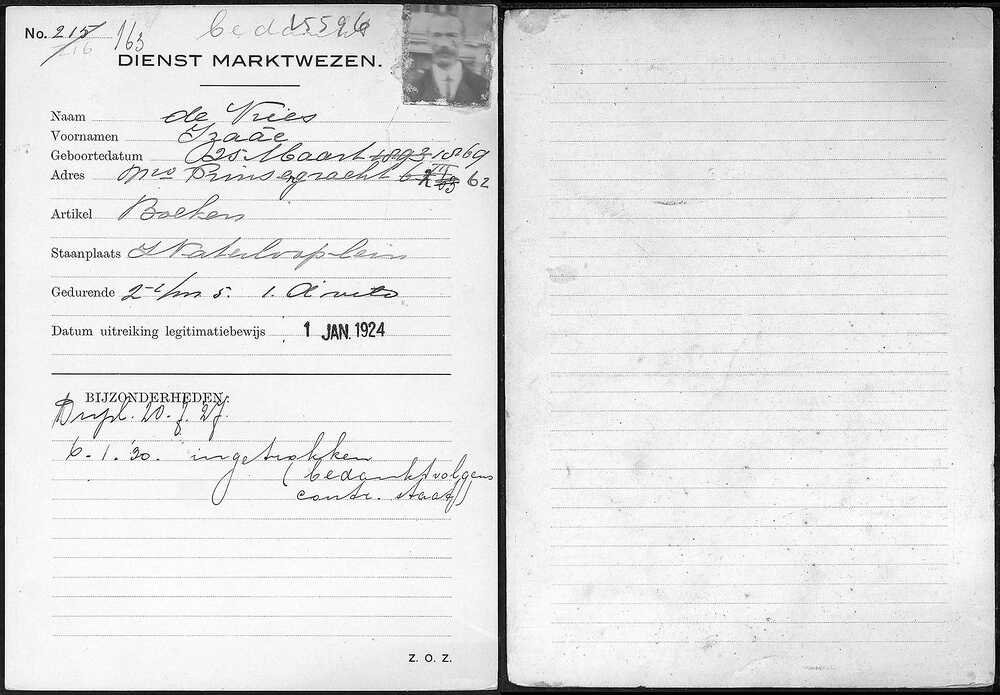 No. 215 163 bedankt 15596
216
DIENST MARKTWEZEN.
Naam de Vries
Voornamen Izaäc
Geboortedatum 25 Maart 1893 1869
Adres Nwe Prinsengracht 62
Artikel Boeken
Staanplaats Waterlooplein
Gedurende 2-1/m 5.
Datum uitreiking legitimatiebewijs 1 JAN. 1924
BIJZONDERHEDEN:
Dupl. 20.7.27.
6.1.'30. ingetrokken
(bedankt volgens
contr. staat)
Z. O. Z.